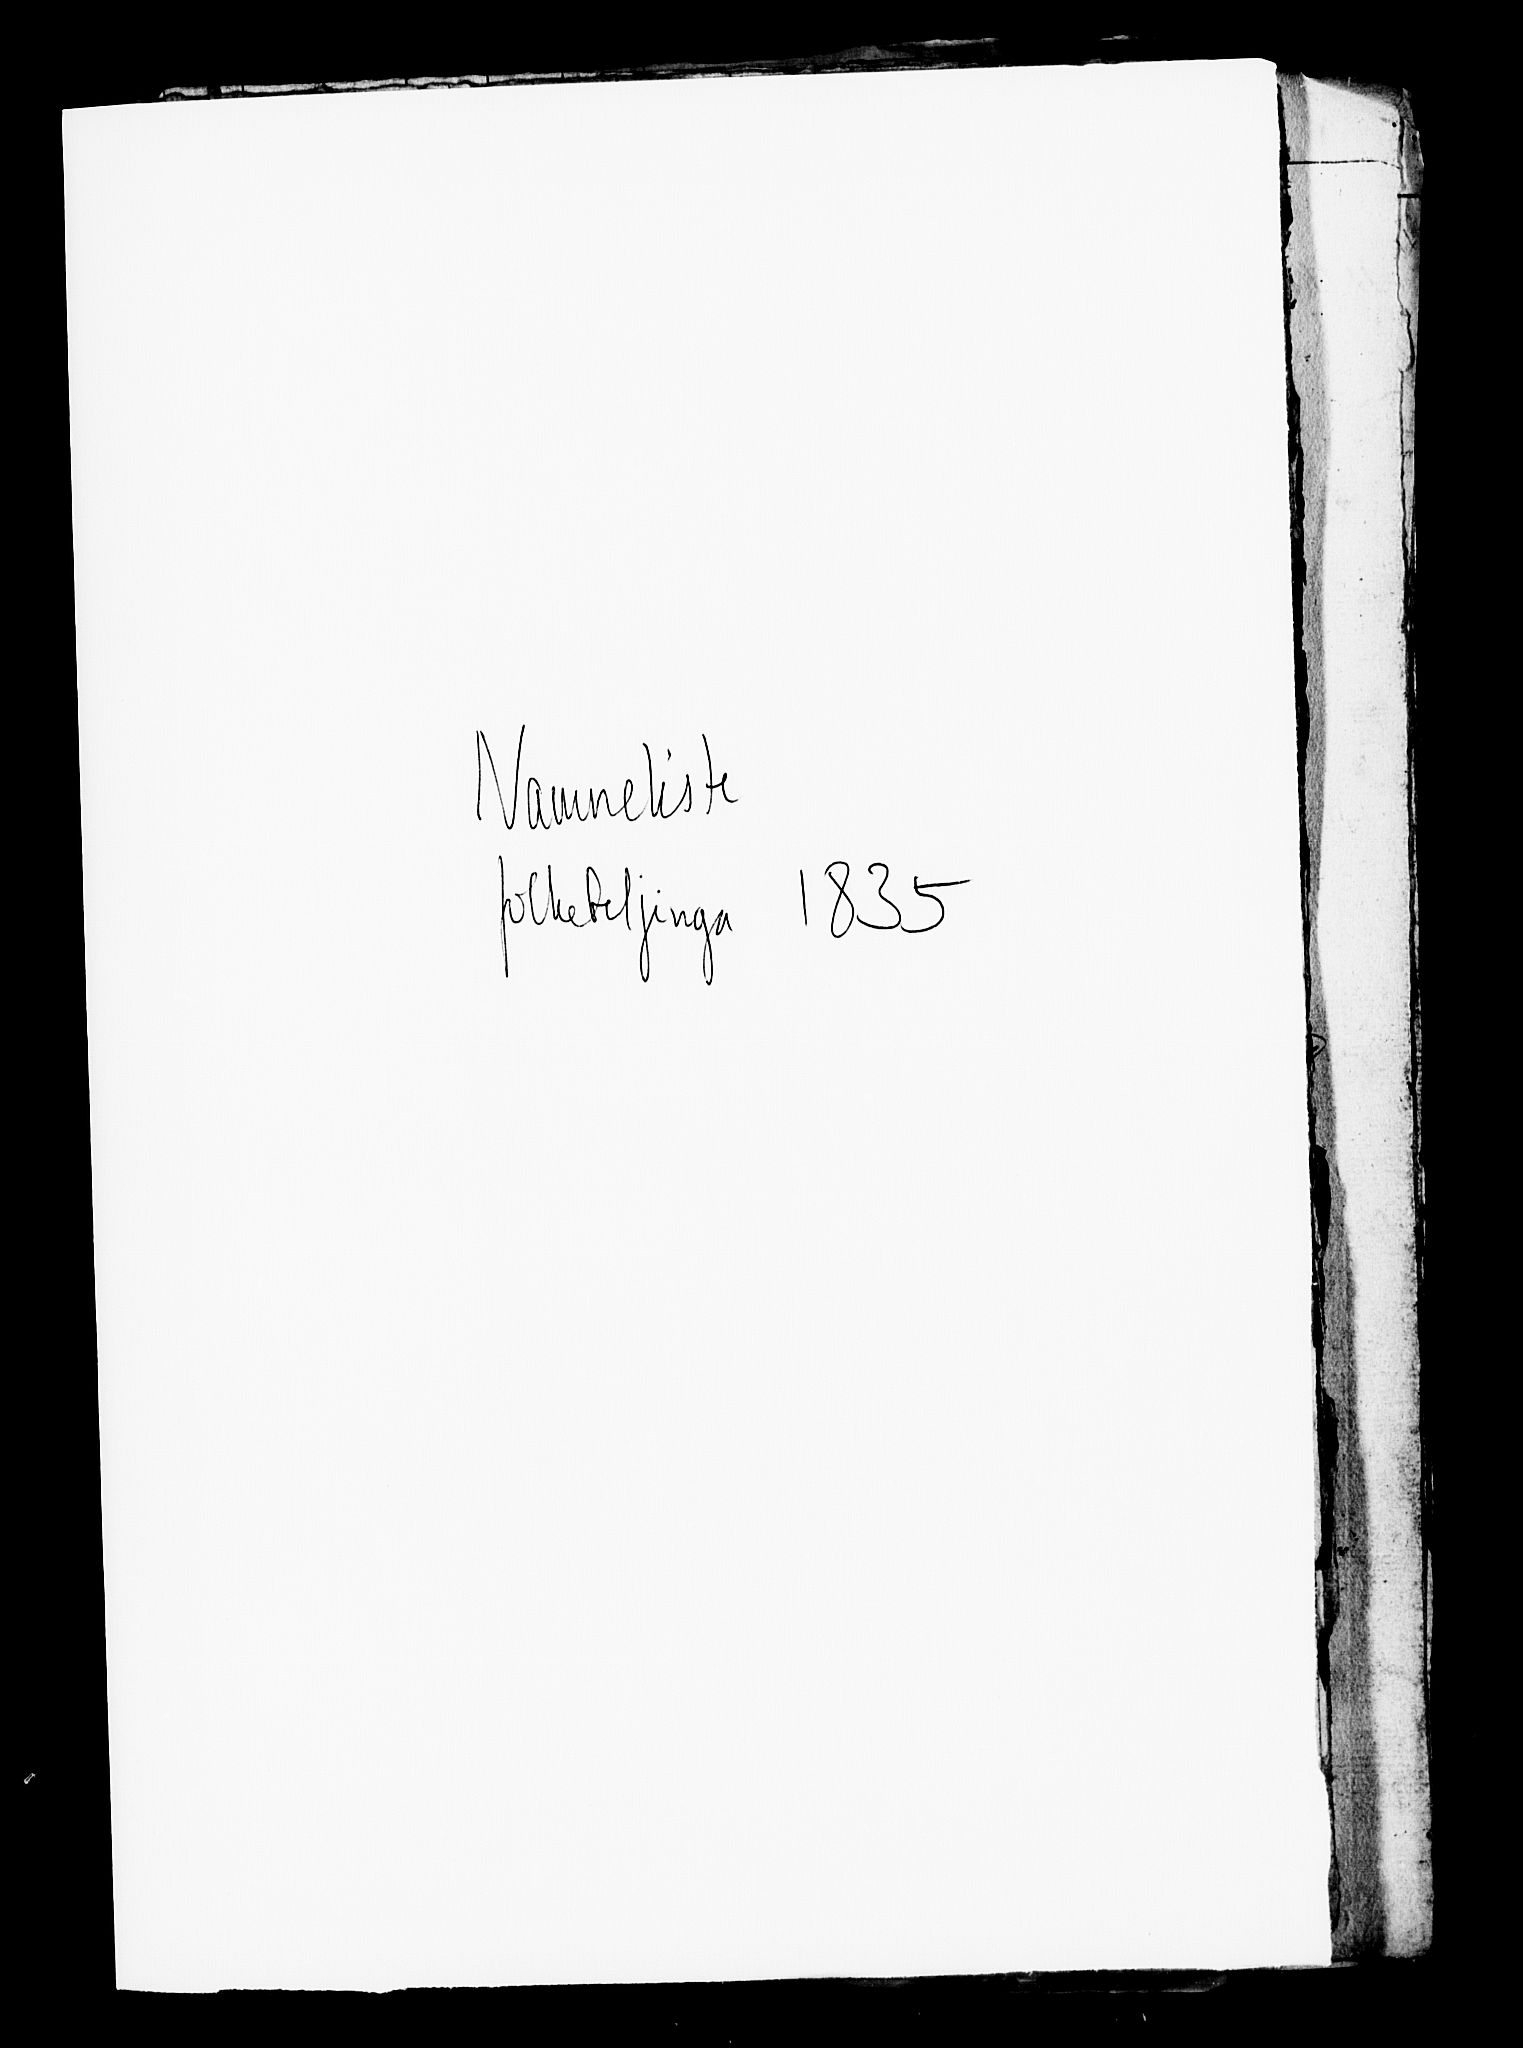 Namneliste
folketeljinga 1835